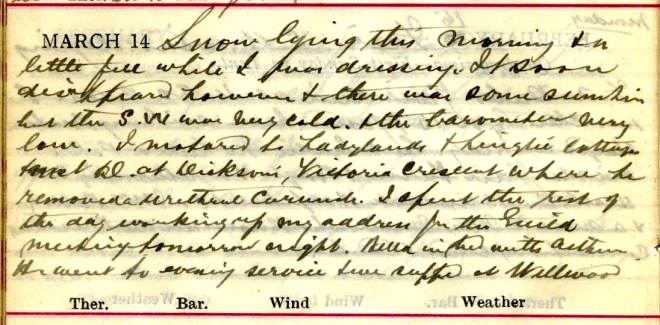 MARCH 14 Snow lying this morning & a
little fell while I was dressing. It soon
disappeared however & there was some sunshine
but the S.W. was very cold. & the barometer very
low. I motored to Ladylands & cottage
& met D. at Dicksons, Victoria Crescent where he
removed a urethral caruncle. I spent the rest of
the day working up my address for the Guild
meeting tomorrow night. Bella in bed with asthma.
We went to evening service & we supped at Wellwood
Ther. Bar. Wind Weather